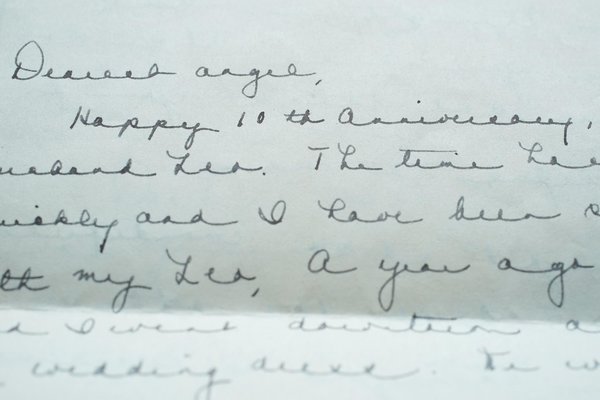 Dearest angel,
Happy 10 th Anniversary,
husband Leo. The time has
quickly and I have been s
th my Leo, A year ago
d I went downtown a
wedding dress. Te w